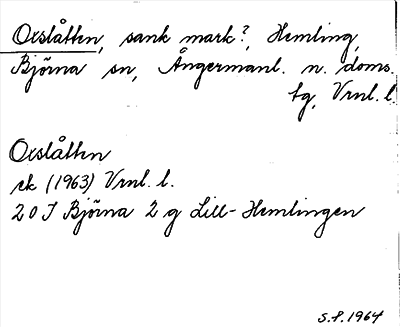 Oxslåtten, sank mark?, Hemling,
Björna sn, Ångermanl. n. doms.
tg, Vrnl. l.
Oxslåtten
ek (1963) Vrnl. l.
20 J Björna 2 g Lill-Hemlingen
S.F. 1964